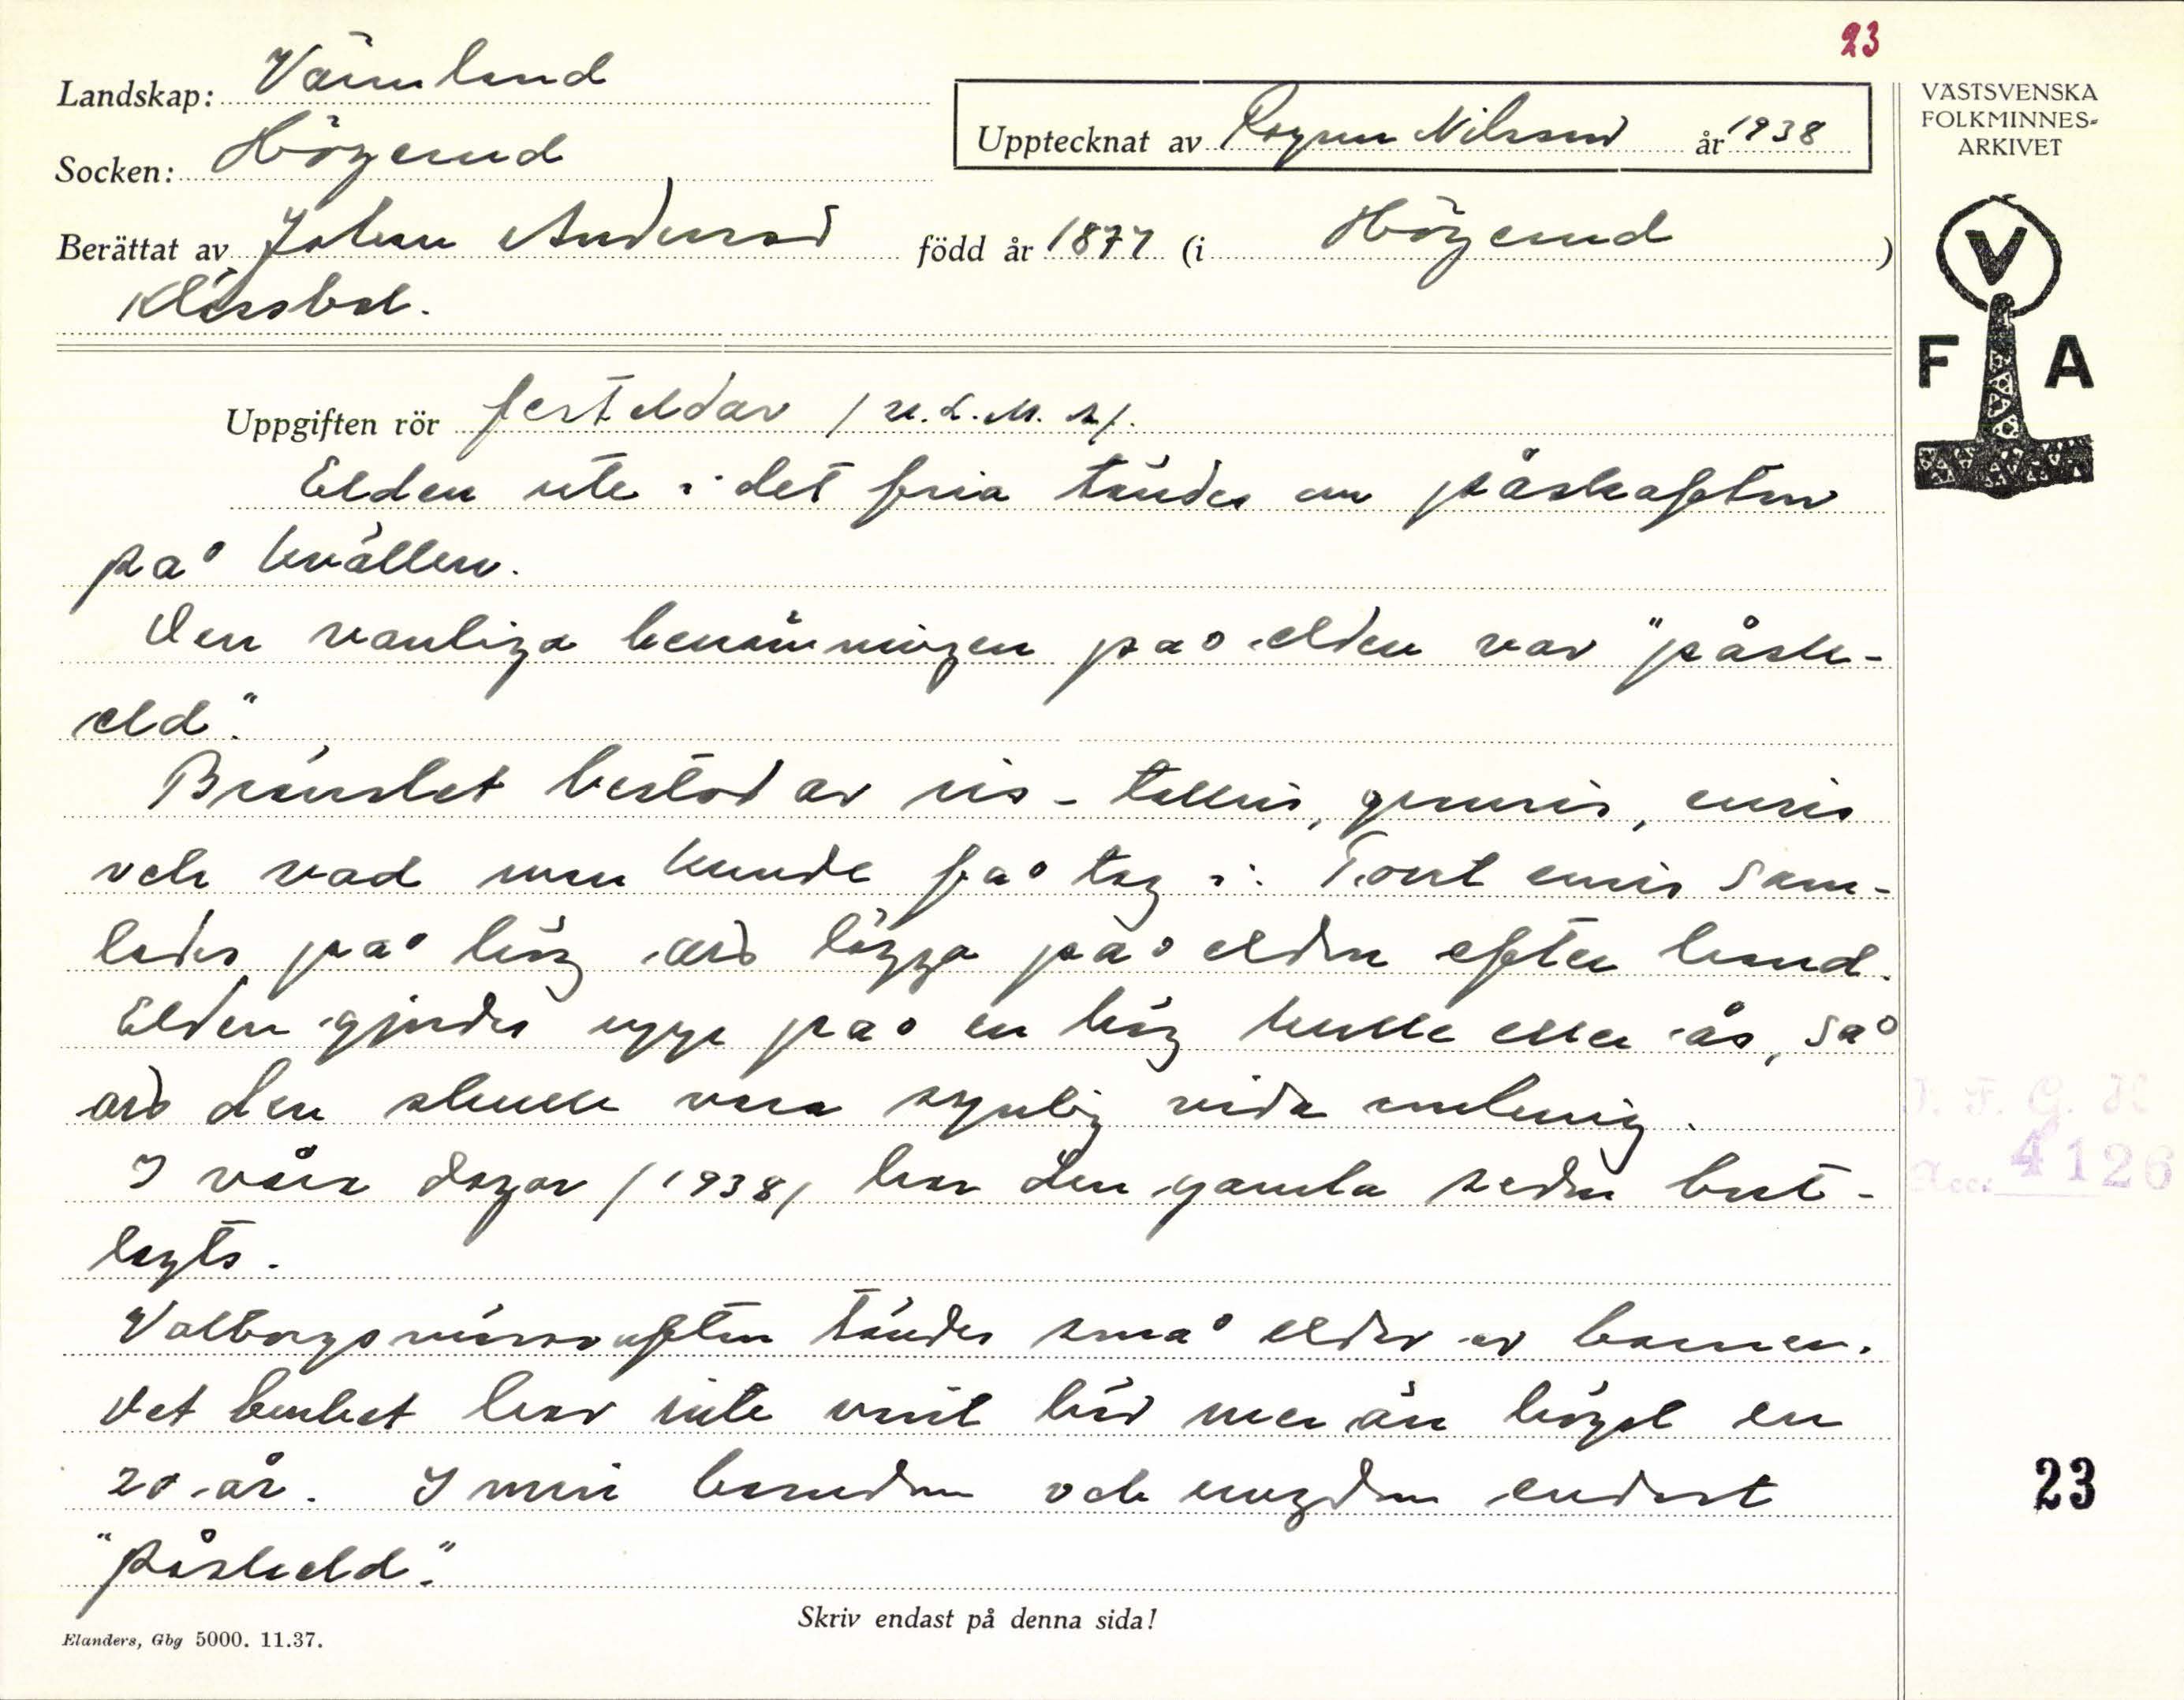 23
Landskap: Värmland
Socken: Högerud
Upptecknat av Ragnar Nilsson år 1938
VÄSTSVENSKA
FOLKMINNES-
ARKIVET
Berättat av Johan Andersson född år 1877 (i Högerud)
Klässbol.
V
F A
Uppgiften rör festeldar / U.L.M. /.
Elden ute i det fria tändes om påskafton
på kvällen.
Den vanliga benämningen på elden var "påsk-
eld".
Bränslet bestod av ris - tallris, granris, enris
och vad man kunde få tag i. Torrt enris sam-
lades på hög att lägga på elden efter hand.
Elden gjordes uppe på en hög kulle eller ås, så
att den skulle vara synlig vida omkring.
I våra dagar /1938/ har den gamla seden bort-
lagts.
Valborgsmässoafton tändes små eldar av barnen.
Det bruket har inte varit här mer än högst en
20 år. I min barndom och ungdom endast
"påskeld".
I. F. G. H
Acc. 4126
23
Skriv endast på denna sida!
Elanders, Gbg 5000. 11.37.